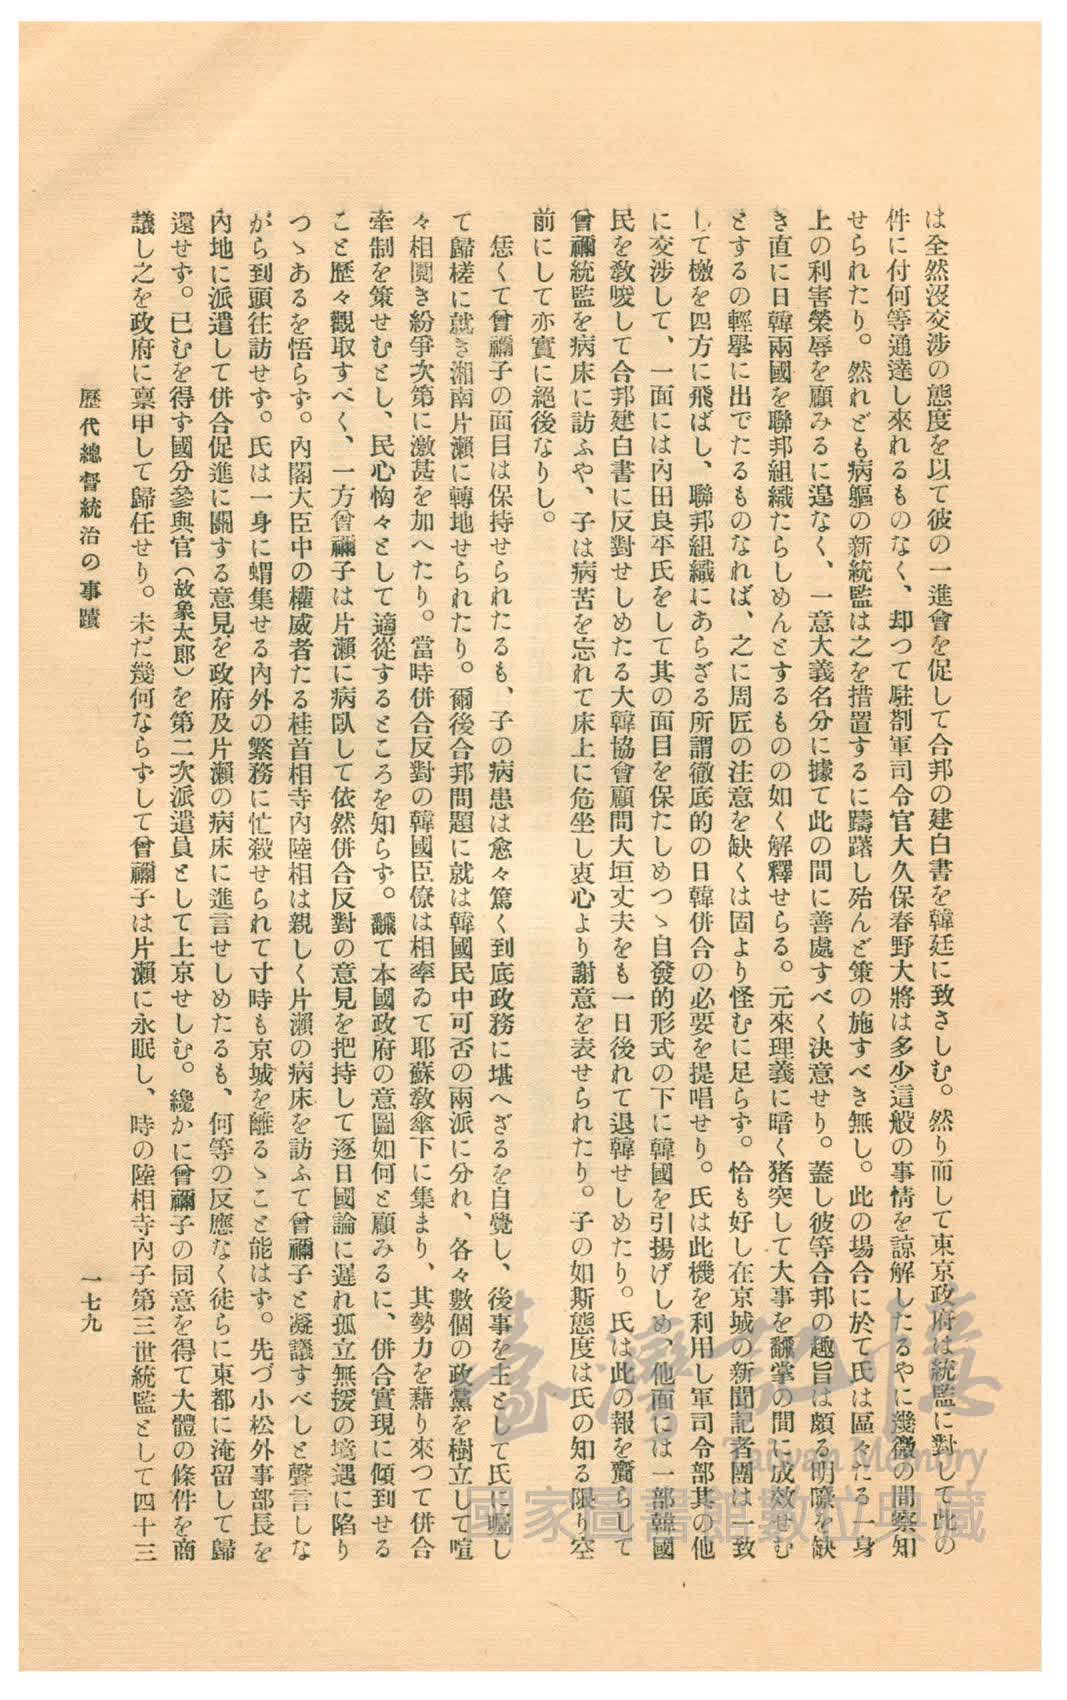 は全然沒交涉の態度を以て彼の一進會を促して合邦の建白書を韓廷に致さしむ。然り而して東京政府は統監に對して此の
件に付何等通達し來れるものなく、却つて駐剳軍司令官大久保春野大將は多少這般の事情を諒解したるやに幾微の間察知
せられたり。然れども病軀の新統監は之を措置するに躊躇し殆んど策の施すべき無し。此の場合に於て氏は區々たる一身
上の利害榮辱を顧みるに遑なく、一意大義名分に據て此の間に善處すべく決意せり。蓋し彼等合邦の趣旨は頗る明瞭を缺
き直に日韓兩國を聯邦組織たらしめんとするものの如く解釋せらる。元來理義に暗く猪突して大事を飜掌の間に成效せむ
とするの輕擧に出でたるものなれば、之に周匠の注意を缺くは固より怪むに足らず。恰も好し在京城の新聞記者團は一致
して檄を四方に飛ばし、聯邦組織にあらざる所謂徹底的の日韓併合の必要を提唱せり。氏は此機を利用し軍司令部其の他
に交涉して、一面には內田良平氏をして其の面目を保たしめつゝ自發的形式の下に韓國を引揚げしめ、他面には一部韓國
民を敎唆して合邦建白書に反對せしめたる大韓協會顧問大垣丈夫をも一日後れて退韓せしめたり。氏は此の報を齎らして
曾禰統監を病床に訪ふや、子は病苦を忘れて床上に危坐し衷心より謝意を表せられたり。子の如斯態度は氏の知る限り空
前にして亦實に絕後なりし。
恁くて曾禰子の面目は保持せられたるも、子の病患は愈々篤く到底政務に堪へざるを自覺し、後事を主として氏に囑し
て歸槎に就き湘南片瀨に轉地せられたり。爾後合邦問題に就は韓國民中可否の兩派に分れ、各々數個の政黨を樹立して喧
々相鬩き紛爭次第に激甚を加へたり。當時併合反對の韓國臣僚は相率ゐて耶蘇敎傘下に集まり、其勢力を藉り來つて併合
牽制を策せむとし、民心恟々として適從するところを知らず。飜て本國政府の意圖如何と顧みるに、併合實現に傾到せる
こと歷々觀取すべく、一方曾禰子は片瀨に病臥して依然併合反對の意見を把持して逐日國論に遲れ孤立無援の境遇に陷り
つゝあるを悟らず。內閣大臣中の權威者たる桂首相寺內陸相は親しく片瀨の病床を訪ふて曾禰子と凝議すべしと聲言しな
がら到頭往訪せず。氏は一身に蝟集せる內外の繁務に忙殺せられて寸時も京城を離るゝこと能はず。先づ小松外事部長を
內地に派遣して併合促進に關する意見を政府及片瀨の病床に進言せしめたるも、何等の反應なく徒らに東都に淹留して歸
還せず。已むを得ず國分參與官（故象太郎）を第二次派遣員として上京せしむ。纔かに曾禰子の同意を得て大體の條件を商
議し之を政府に禀申して歸任せり。未だ幾何ならずして曾禰子は片瀨に永眠し、時の陸相寺內子第三世統監として四十三
歷代總督統治の事蹟
一七九
臺灣記憶
Taiwan Memory
國家圖書館數位典藏